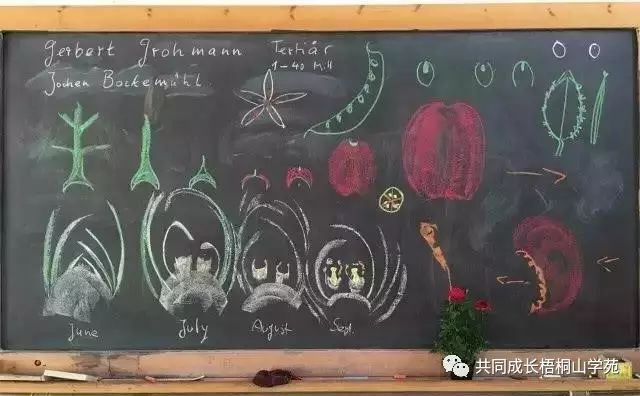 Gerbert Grohmann
Jochen Bockemühl
Tertiär
1-40 Mill
June
July
August
Sept.
共同成长梧桐山学苑